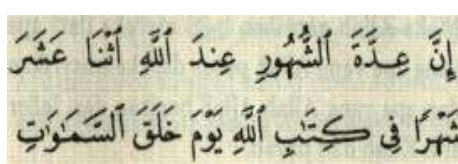 إِنَّ عِدَّةَ ٱلشُّهُورِ عِندَ ٱللَّهِ ٱثْنَا عَشَرَ
شَهْرًا فِى كِتَٰبِ ٱللَّهِ يَوْمَ خَلَقَ ٱلسَّمَٰوَٰتِ